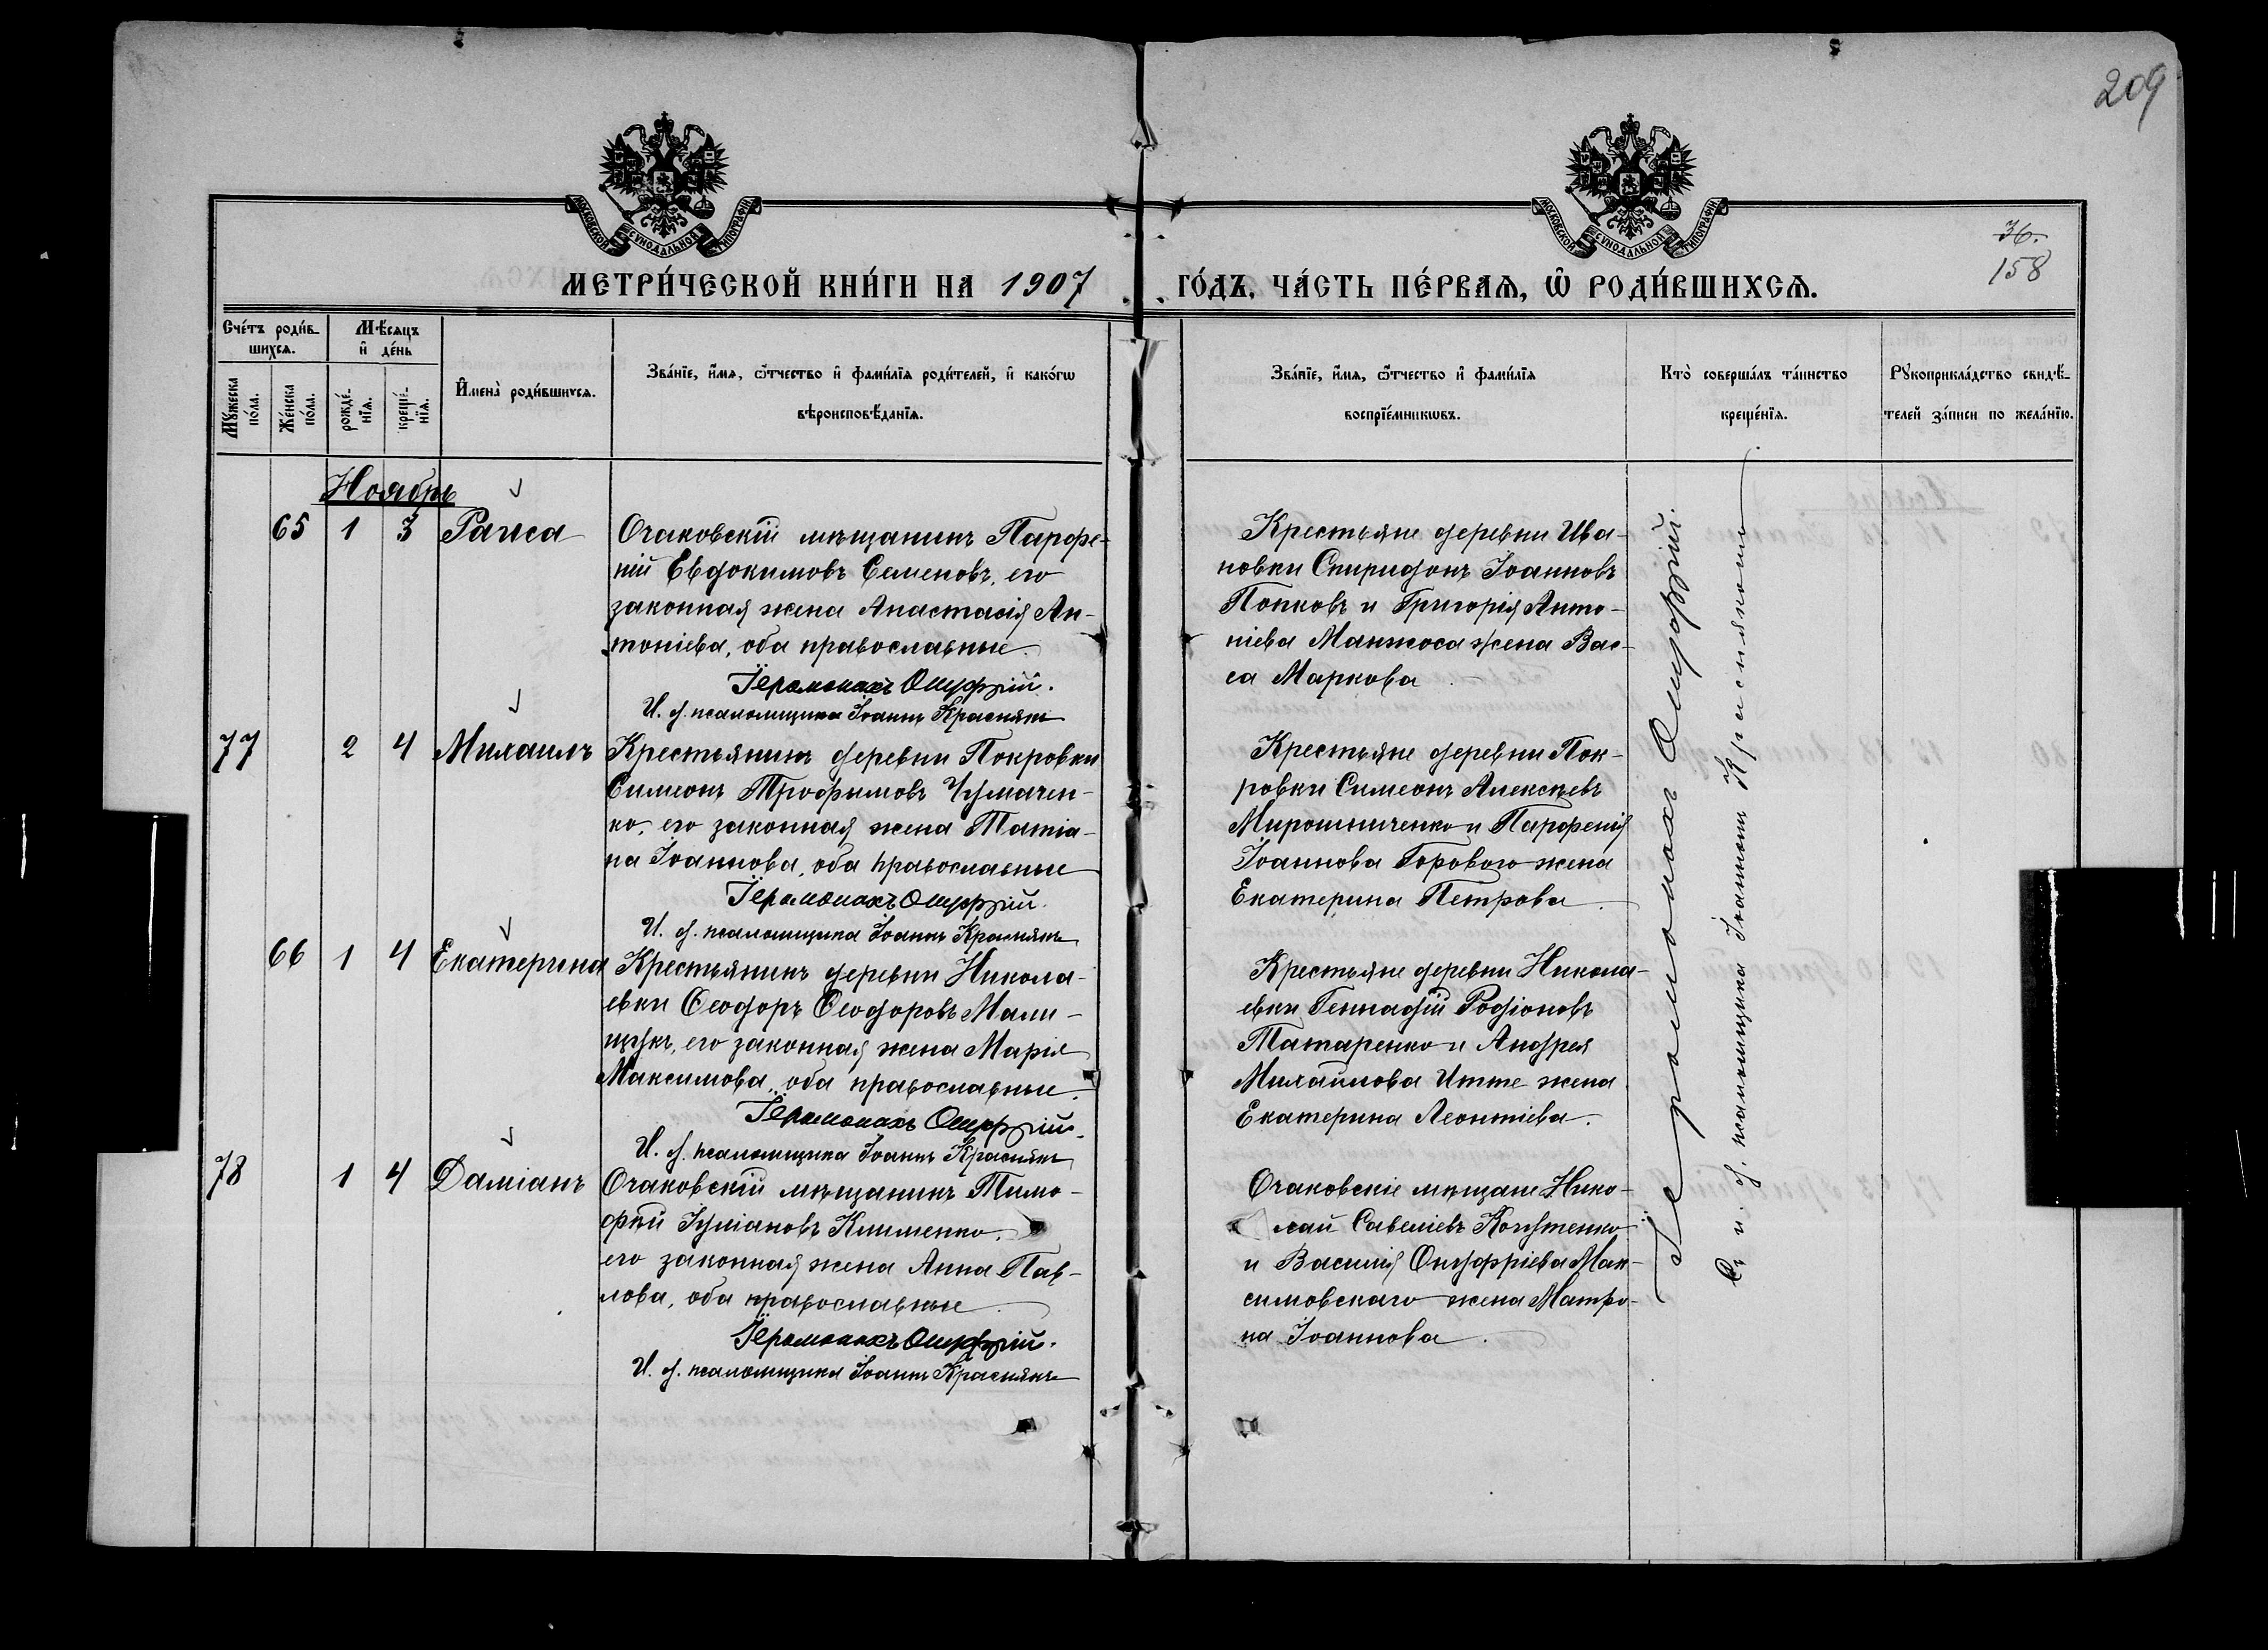 209
36.
158
МОСКОВСКОЙ СѴНОДАЛЬНОЙ ТИПОГРАФІИ
МОСКОВСКОЙ СѴНОДАЛЬНОЙ ТИПОГРАФІИ
МЕТРИ́ЧЕСКОЙ КНИ́ГИ НА 1907 ГО́ДЪ, ЧА́СТЬ ПЕ́РВАЯ, Ѡ҆ РОДИ́ВШИХСЯ.
Сче́тъ роди́в-
шихся.
Мѣ́сяцъ
и҆ де́нь
Мꙋ́жеска
по́ла.
Же́нска
по́ла.
рожде́-
нїя.
креще́-
нїя.
И҆мена̀ роди́вшихся.
Зва́нїе, и҆́мя, ѻ҆́тчество и҆ фами́лїя роди́телей, и҆ како́гѡ
вѣроисповѣ́данїя.
Зва́нїе, и҆́мя, ѻ҆́тчество и҆ фами́лїя
воспрїе́мникѡвъ.
Кто̀ соверша́лъ та́инство
креще́нїя.
Рꙋкоприкла́дство свидѣ́-
телей за́писи по жела́нїю.
Ноябрь
65 1 3 Раиса
Очаковскій мѣщанинъ Парфе-
ній Евдокимовъ Семеновъ, его
законная жена Анастасія Ан-
тоніева, оба православные.
Іеромонахъ Онуфрій.
И. д. псаломщика Іоаннъ Краснякъ
Крестьяне деревни Ива-
новки Спиридонъ Іоанновъ
Попковъ и Григорія Анто-
ніева Манжоса жена Вас-
са Маркова
77 2 4 Михаилъ
Крестьянинъ деревни Покровки
Симеонъ Трофимовъ Чумачен-
ко, его законная жена Татіа-
на Іоаннова, оба православные
Іеромонахъ Онуфрій.
И. д. псаломщика Іоаннъ Краснякъ
Крестьяне деревни Пок-
ровки Симеонъ Алексѣевъ
Мирошниченко и Парфенія
Іоаннова Горового жена
Екатерина Петрова.
66 1 4 Екатерина
Крестьянинъ деревни Никола-
евки Ѳеодоръ Ѳеодоровъ Мали-
щукъ, его законная жена Марія
Максимова, оба православные.
Іеромонахъ Онуфрій.
И. д. псаломщика Іоаннъ Краснякъ
Крестьяне деревни Никола-
евки Геннадій Родіоновъ
Татаренко и Андрея
Михайлова Итте жена
Екатерина Леонтіева.
78 1 4 Даміанъ
Очаковскій мѣщанинъ Тимо-
фей Іуліановъ Клименко,
его законная жена Анна Пав-
лова, оба православные.
Іеромонахъ Онуфрій.
И. д. псаломщика Іоаннъ Краснякъ
Очаковскіе мѣщане Нико-
лай Савеліевъ
и Василія Онуфріева Мак-
симовскаго жена Матро-
на Іоаннова.
Іеромонахъ Онуфрій.
Съ и. д. псаломщика Іоанномъ Краснякомъ